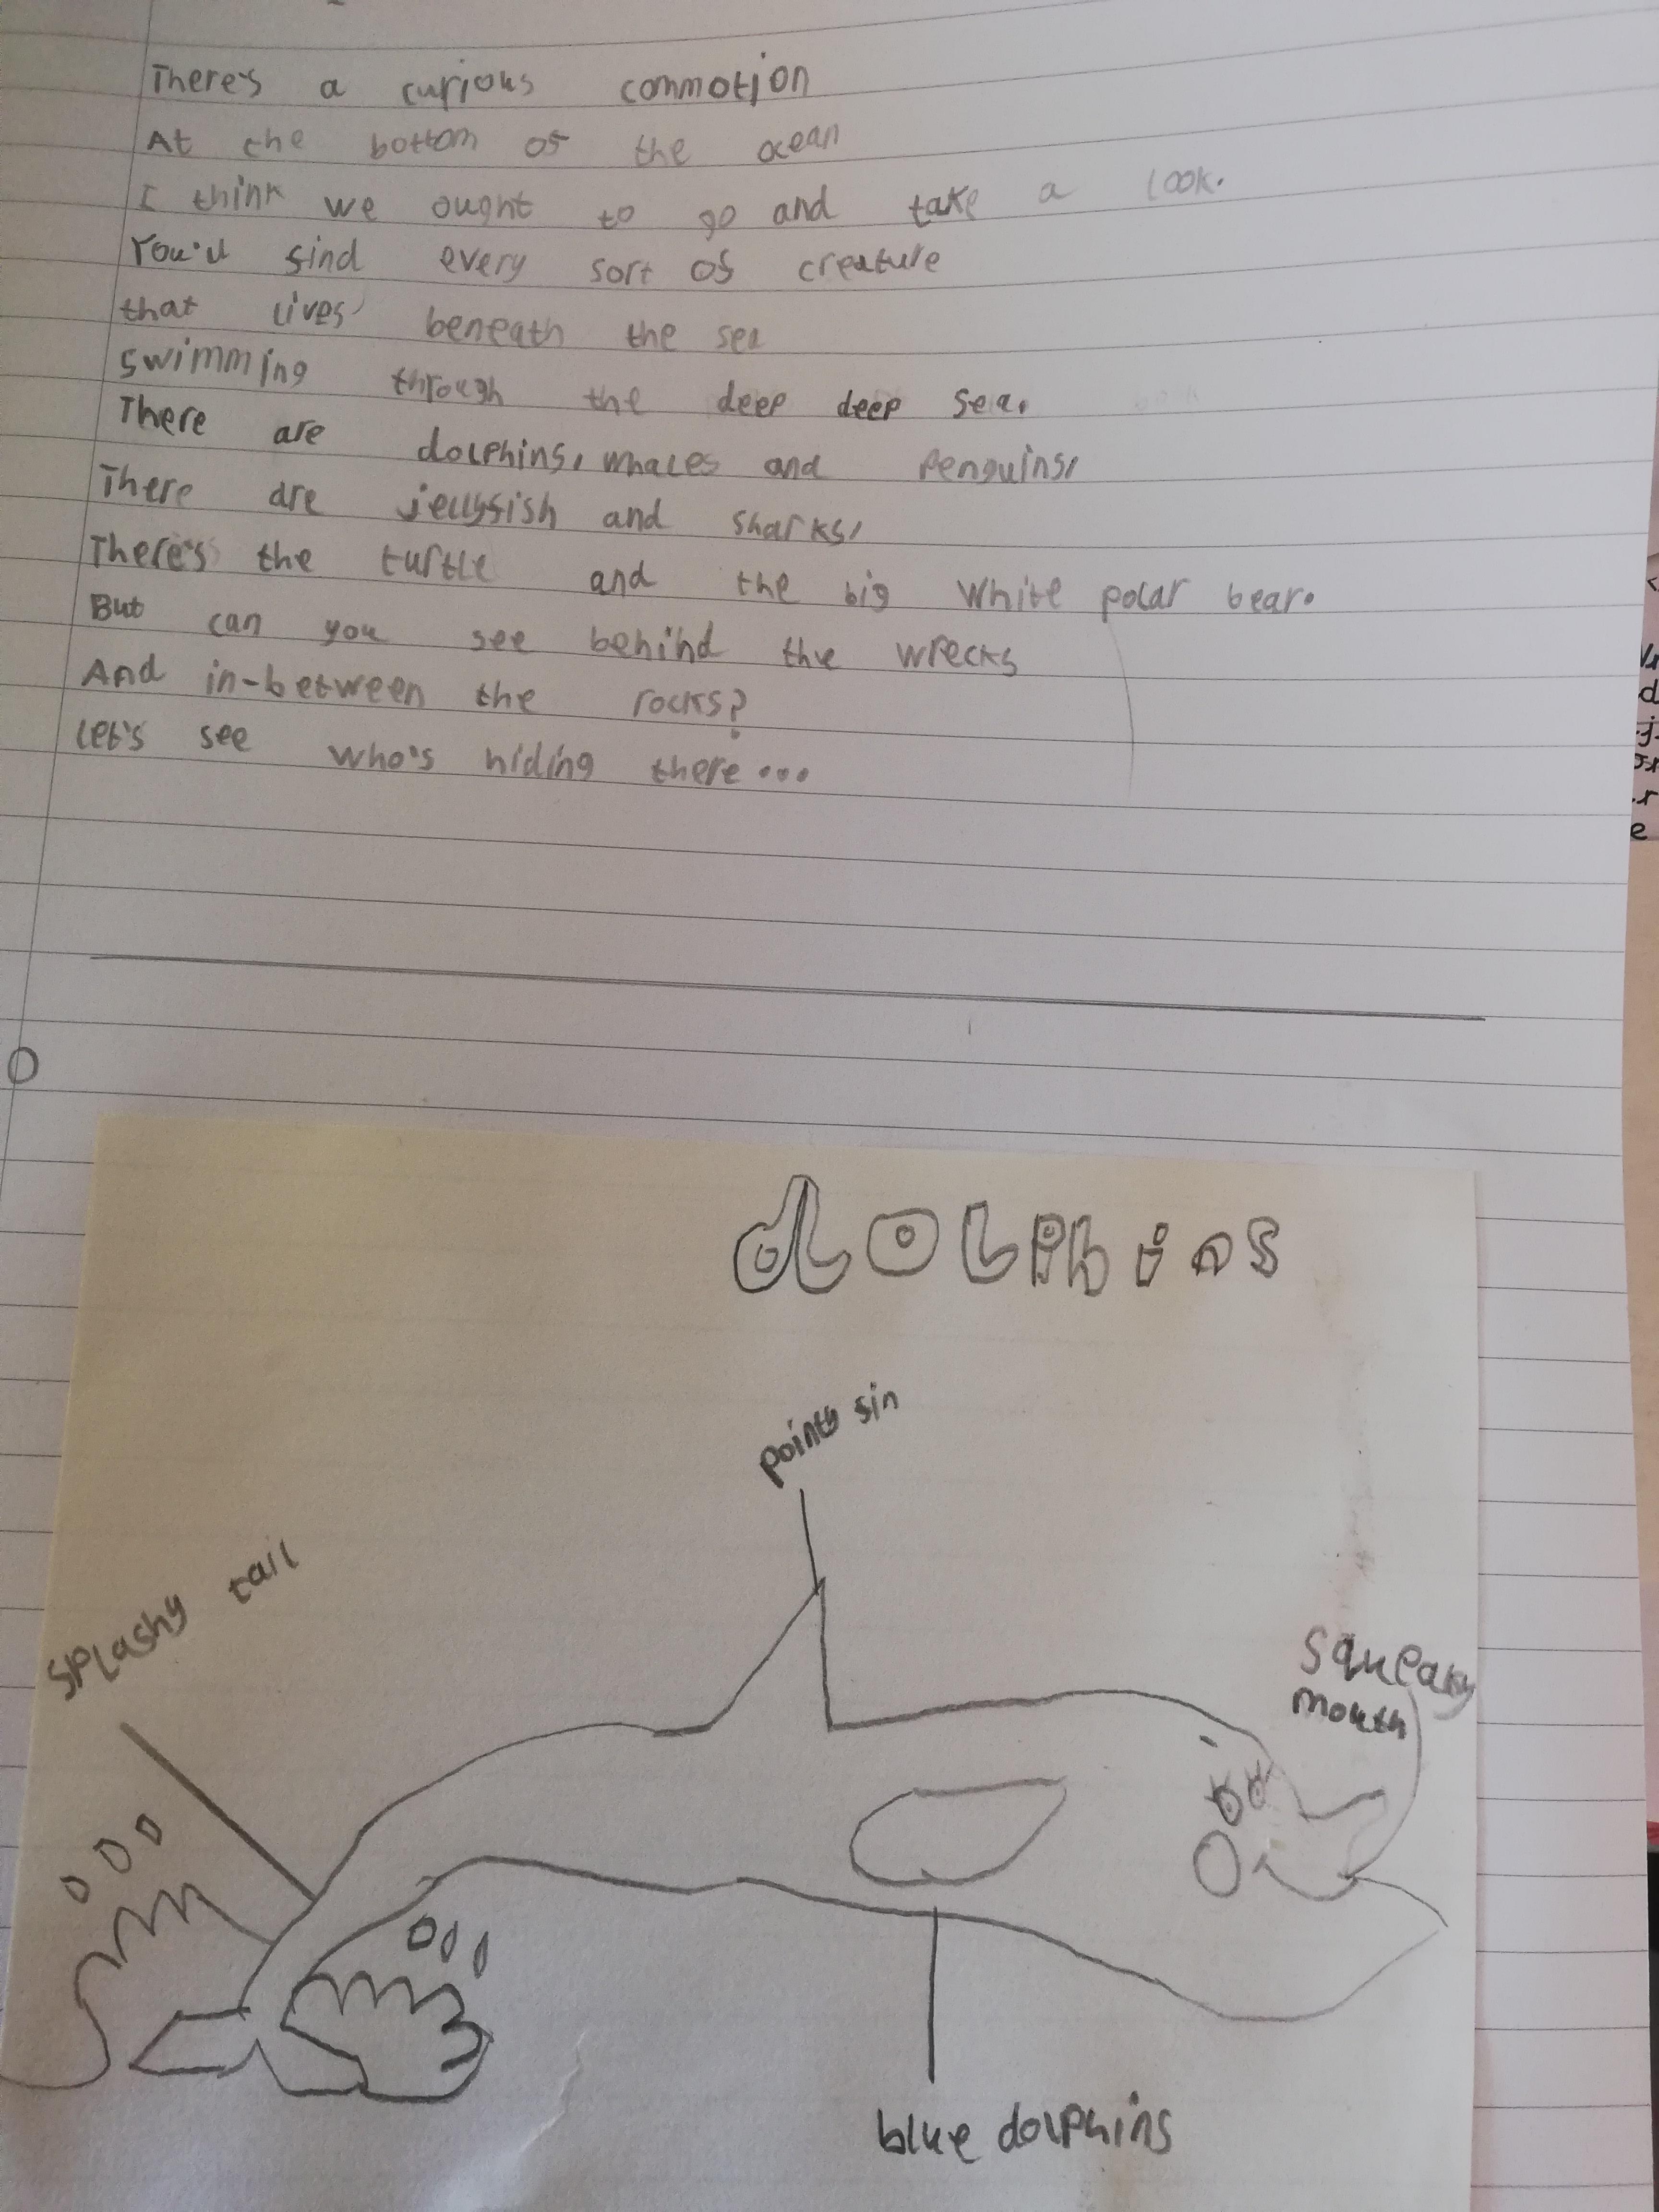 There's a curious commotion
At the bottom of the ocean
I think we ought to go and take a look.
You'd find every sort of creature
that lives beneath the sea
swimming through the deep deep sea.
There are dolphins, whales and Penguins,
There are jellyfish and sharks,
There's the turtle and the big white polar bear.
But can you see behind the wrecks
And in-between the rocks?
Let's see who's hiding there...
dolphins
pointy fin
splashy tail
squeaky
mouth
blue dolphins